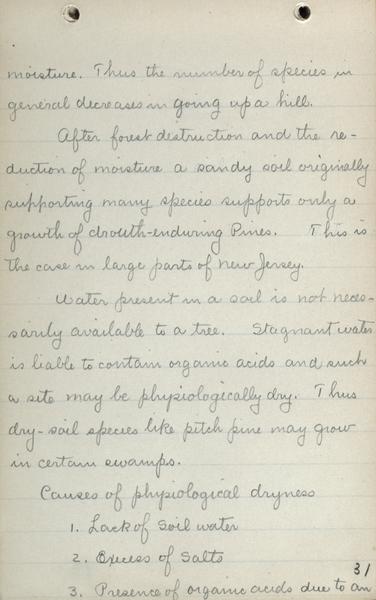 moisture. Thus the number of species in
general decreases in going up a hill.
After forest destruction and the re-
duction of moisture a sandy soil originally
supporting many species supports only a
growth of drouth-enduring Pines. This is
the case in large parts of New Jersey.
Water present in a soil is not neces-
sarily available to a tree. Stagnant water
is liable to contain organic acids and such
a site may be physiologically dry. Thus
dry-soil species like pitch pine may grow
in certain swamps.
Causes of physiological dryness
1. Lack of soil water
2. Excess of salts
31
3. Presence of organic acids due to an